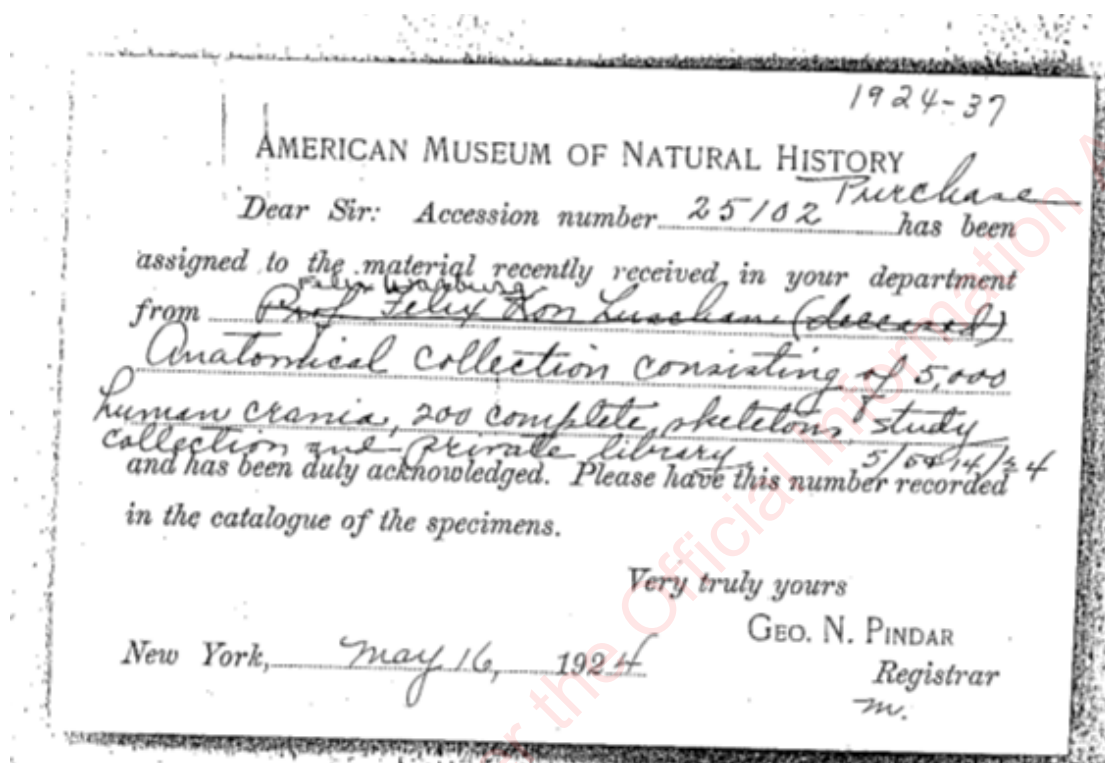 1924-37
AMERICAN MUSEUM OF NATURAL HISTORY
Purchase
Dear Sir: Accession number 25102 has been
assigned to the material recently received in your department
Felix Warburg
from Prof Felix Von Luschan (deceased)
Anatomical collection consisting of 5,000
human crania, 200 complete skeletons, study
collection and private library
and has been duly acknowledged. Please have this number recorded
in the catalogue of the specimens.
Very truly yours
GEO. N. PINDAR
New York, May 16, 1924
Registrar
m.
the Official Information